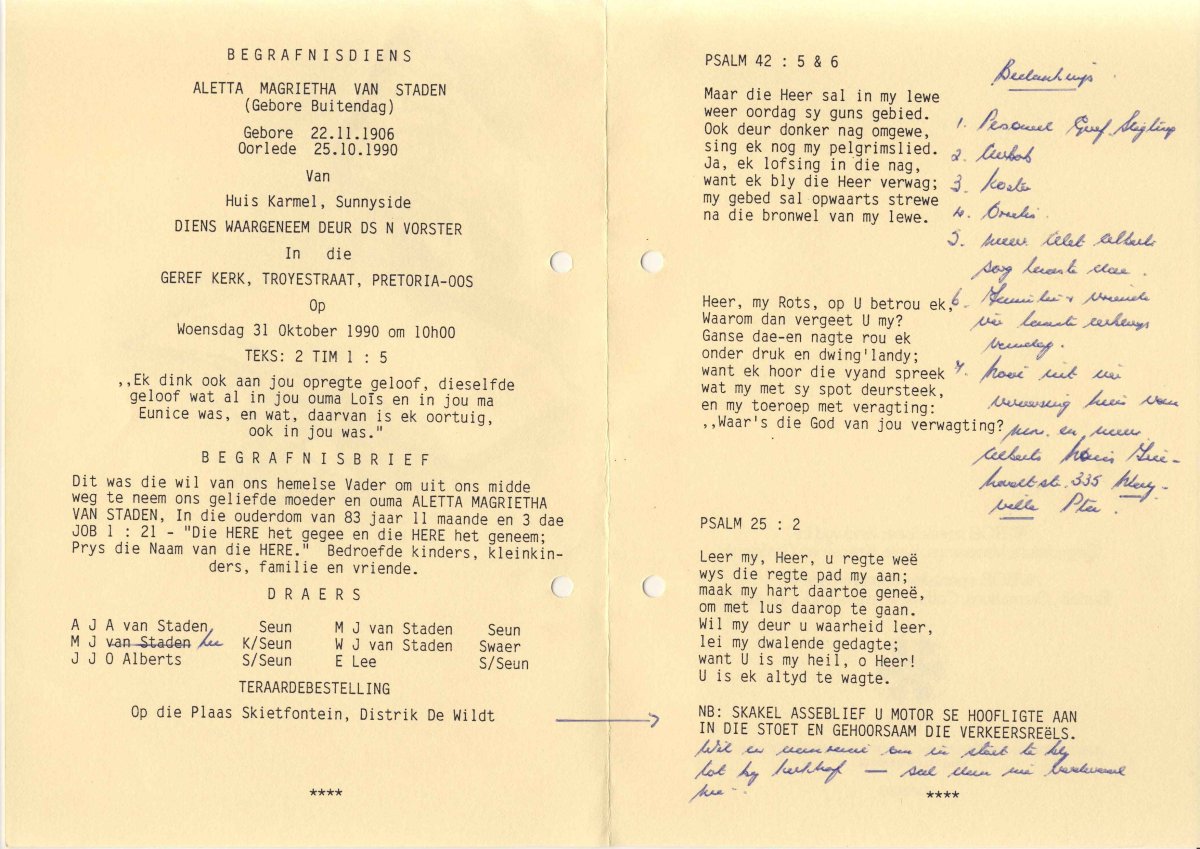 BEGRAFNISDIENS
ALETTA MAGRIETHA VAN STADEN
(Gebore Buitendag)
Gebore 22.11.1906
Oorlede 25.10.1990
Van
Huis Karmel, Sunnyside
DIENS WAARGENEEM DEUR DS N VORSTER
In die
GEREF KERK, TROYESTRAAT, PRETORIA-OOS
Op
Woensdag 31 Oktober 1990 om 10h00
TEKS: 2 TIM 1 : 5
,,Ek dink ook aan jou opregte geloof, dieselfde
geloof wat al in jou ouma Loïs en in jou ma
Eunice was, en wat, daarvan is ek oortuig,
ook in jou was."
BEGRAFNISBRIEF
Dit was die wil van ons hemelse Vader om uit ons midde
weg te neem ons geliefde moeder en ouma ALETTA MAGRIETHA
VAN STADEN, In die ouderdom van 83 jaar 11 maande en 3 dae
JOB 1 : 21 - "Die HERE het gegee en die HERE het geneem;
Prys die Naam van die HERE." Bedroefde kinders, kleinkin-
ders, familie en vriende.
DRAERS
A J A van Staden Seun M J van Staden Seun
M J van Staden Lee K/Seun W J van Staden Swaer
J J O Alberts S/Seun E Lee S/Seun
TERAARDEBESTELLING
Op die Plaas Skietfontein, Distrik De Wildt
****
PSALM 42 : 5 & 6
Maar die Heer sal in my lewe
weer oordag sy guns gebied.
Ook deur donker nag omgewe,
sing ek nog my pelgrimslied.
Ja, ek lofsing in die nag,
want ek bly die Heer verwag;
my gebed sal opwaarts strewe
na die bronwel van my lewe.
Heer, my Rots, op U betrou ek,
Waarom dan vergeet U my?
Ganse dae-en nagte rou ek
onder druk en dwing'landy;
want ek hoor die vyand spreek
wat my met sy spot deursteek,
en my toeroep met veragting:
,,Waar's die God van jou verwagting?
Bedankings
1. Personeel Geref.
2.
3. Koster
4.
5. Mev. Alberts
sorg laaste dae.
6. Familie + vriende
vir laaste
vandag.
7. Nooi uit vir
verversing huis van
mnr. en mev.
Alberts
335
ville Pta.
PSALM 25 : 2
Leer my, Heer, u regte weë
wys die regte pad my aan;
maak my hart daartoe geneë,
om met lus daarop te gaan.
Wil my deur u waarheid leer,
lei my dwalende gedagte;
want U is my heil, o Heer!
U is ek altyd te wagte.
NB: SKAKEL ASSEBLIEF U MOTOR SE HOOFLIGTE AAN
IN DIE STOET EN GEHOORSAAM DIE VERKEERSREëLS.
om in stoet te bly
tot by kerkhof — sal dan nie verdwaal
nie.
****